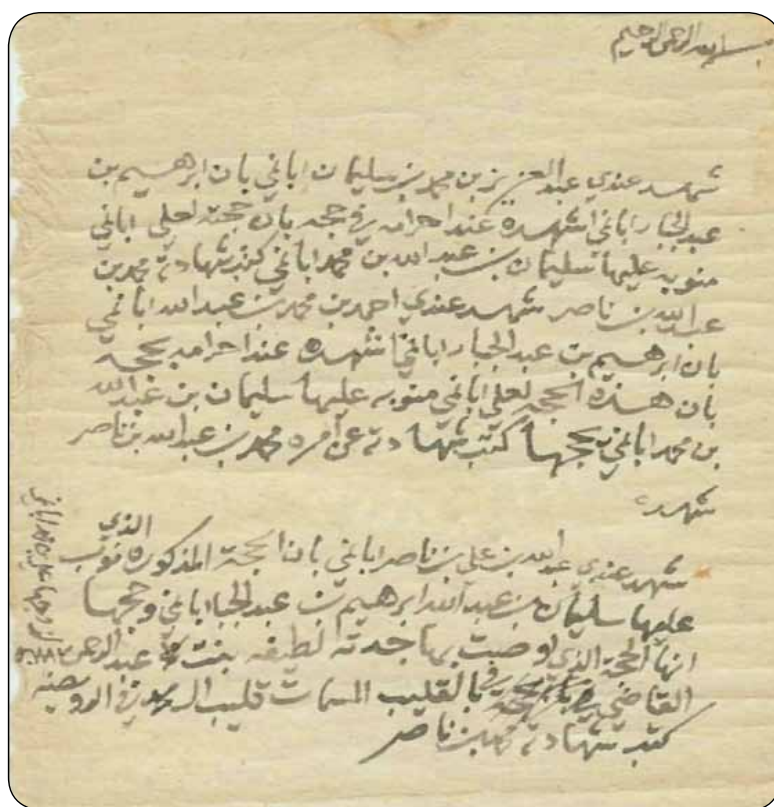 بسم الله الرحمن الرحيم
شهد عندي عبدالعزيز بن محمد بن سليمان اباني بان ابرهيم بن
عبدالجبار اباني اشهده عند احرامه في حجه بان حجته لعلي اباني
منوبه عليها سليمان بن عبدالله بن محمد اباني كتب شهادته محمد بن
عبدالله بن ناصر شهد عندي احمد بن محمد بن عبدالله اباني
بان ابرهيم بن عبدالجبار اباني اشهده عند احرامه بحجه
بان هذه الحجه لعلي اباني منوبه عليها سليمان بن عبدالله
بن محمد اباني بحجها كتب شهادته عن امره محمد بن عبدالله بن ناصر
شهد
شهد عندي عبدالله بن علي بن ناصر اباني بان الحجة المذكوره الذي نوب
عليها سليمان بن عبدالله ابرهيم بن عبدالجبار اباني وحجها
انها الحجة الذي اوصت بها جدته لطيفه بنت عبدالرحمن
القاضي بالقليب المسمات قليب في الروضه
كتب شهادته محمد بن ناصر